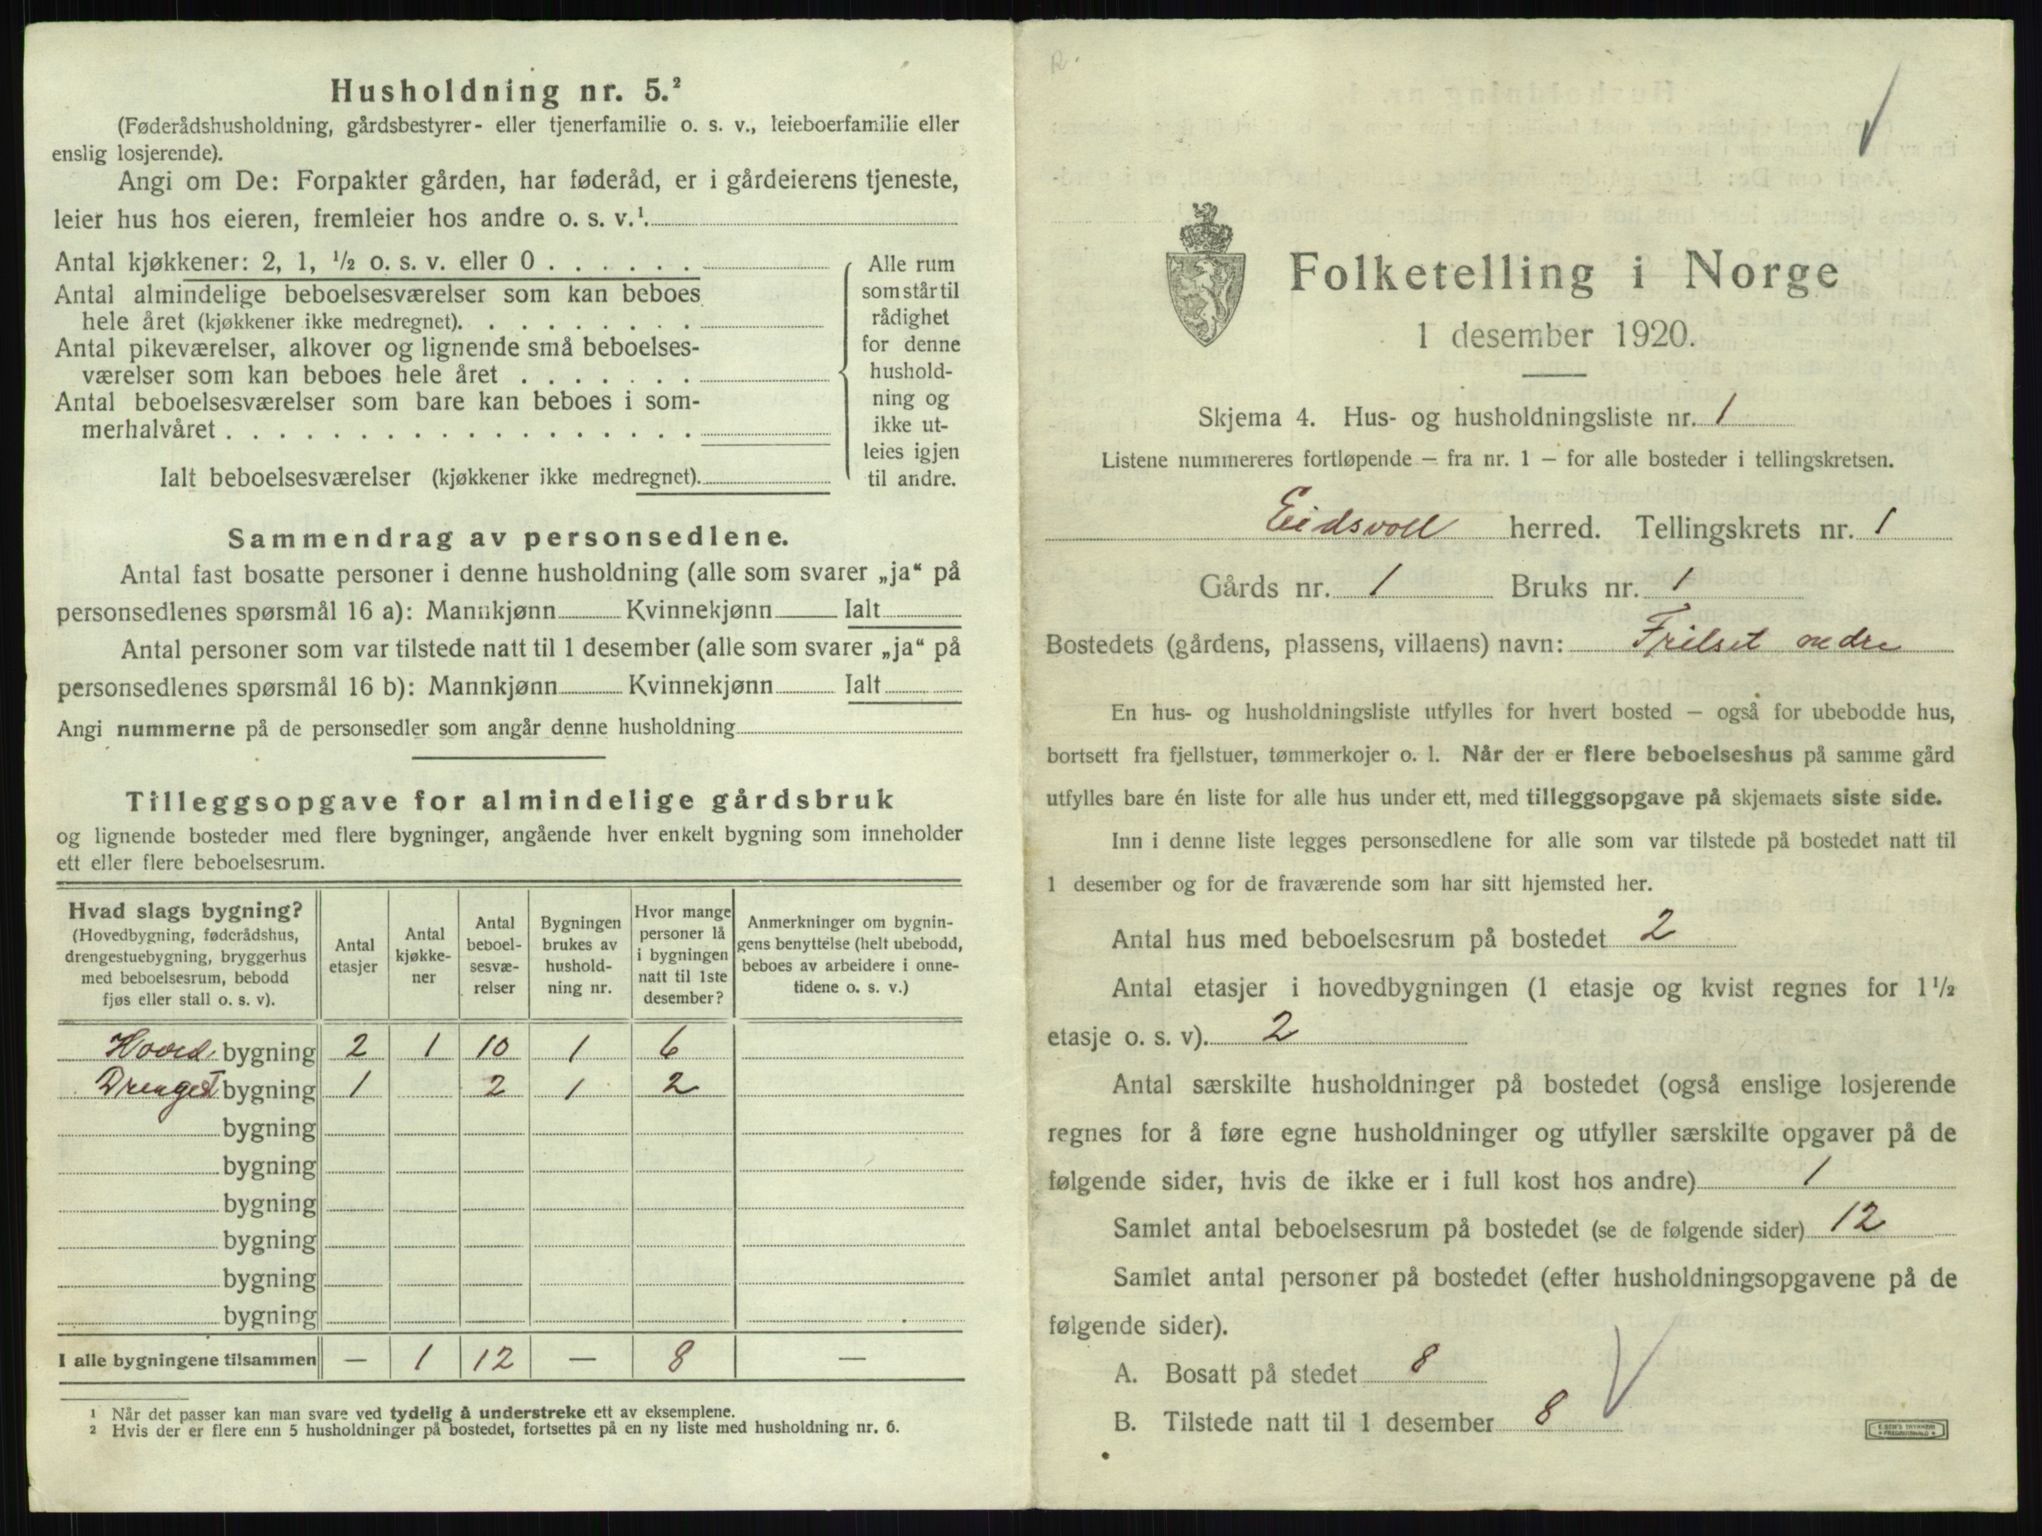 Husholdning nr. 5.²
(Føderådshusholdning, gårdsbestyrer- eller tjenerfamilie o. s. v., leieboerfamilie eller
enslig losjerende).
Angi om De: Forpakter gården, har føderåd, er i gårdeierens tjeneste,
leier hus hos eieren, fremleier hos andre o. s. v.¹.
Antal kjøkkener: 2, 1, ½ o. s. v. eller 0 . . . . . .
Antal almindelige beboelsesværelser som kan beboes
hele året (kjøkkener ikke medregnet). . . . . . . . .
Antal pikeværelser, alkover og lignende små beboelses-
værelser som kan beboes hele året . . . . . . .
Antal beboelsesværelser som bare kan beboes i som-
merhalvåret . . . . . . . . . . . . . . . . . .
Ialt beboelsesværelser (kjøkkener ikke medregnet).
Alle rum
som står til
rådighet
for denne
hushold-
ning og
ikke ut-
leies igjen
til andre.
Sammendrag av personsedlene.
Antal fast bosatte personer i denne husholdning (alle som svarer „ja“ på
personsedlenes spørsmål 16 a): Mannkjønn Kvinnekjønn Ialt
Antal personer som var tilstede natt til 1 desember (alle som svarer „ja“ på
personsedlenes spørsmål 16 b): Mannkjønn Kvinnekjønn Ialt
Angi nummerne på de personsedler som angår denne husholdning
Tilleggsopgave for almindelige gårdsbruk
og lignende bosteder med flere bygninger, angående hver enkelt bygning som inneholder
ett eller flere beboelsesrum.
Hvad slags bygning?
(Hovedbygning, føderådshus,
drengestuebygning, bryggerhus
med beboelsesrum, bebodd
fjøs eller stall o. s. v).
Antal
etasjer
Antal
kjøkke-
ner
Antal
beboel-
sesvæ-
relser
Bygningen
brukes av
hushold-
ning nr.
Hvor mange
personer lå
i bygningen
natt til 1ste
desember?
Anmerkninger om bygnin-
gens benyttelse (helt ubebodd,
beboes av arbeidere i onne-
tidene o. s. v.)
Hoved bygning 2 1 10 1 6
Drengest bygning 1 2 1 2
bygning
bygning
bygning
bygning
bygning
bygning
I alle bygningene tilsammen — 1 12 — 8 —
¹ Når det passer kan man svare ved tydelig å understreke ett av eksemplene.
² Hvis der er flere enn 5 husholdninger på bostedet, fortsettes på en ny liste med husholdning nr. 6.
R.
Folketelling i Norge
1 desember 1920.
Skjema 4. Hus- og husholdningsliste nr. 1
Listene nummereres fortløpende — fra nr. 1 — for alle bosteder i tellingskretsen.
Eidsvoll herred. Tellingskrets nr. 1
Gårds nr. 1 Bruks nr. 1
Bostedets (gårdens, plassens, villaens) navn: Frilset nedre
En hus- og husholdningsliste utfylles for hvert bosted — også for ubebodde hus,
bortsett fra fjellstuer, tømmerkojer o. l. Når der er flere beboelseshus på samme gård
utfylles bare én liste for alle hus under ett, med tilleggsopgave på skjemaets siste side.
Inn i denne liste legges personsedlene for alle som var tilstede på bostedet natt til
1 desember og for de fraværende som har sitt hjemsted her.
Antal hus med beboelsesrum på bostedet 2
Antal etasjer i hovedbygningen (1 etasje og kvist regnes for 1½
etasje o. s. v). 2
Antal særskilte husholdninger på bostedet (også enslige losjerende
regnes for å føre egne husholdninger og utfyller særskilte opgaver på de
følgende sider, hvis de ikke er i full kost hos andre) 1
Samlet antal beboelsesrum på bostedet (se de følgende sider) 12
Samlet antal personer på bostedet (efter husholdningsopgavene på de
følgende sider).
A. Bosatt på stedet 8
B. Tilstede natt til 1 desember 8